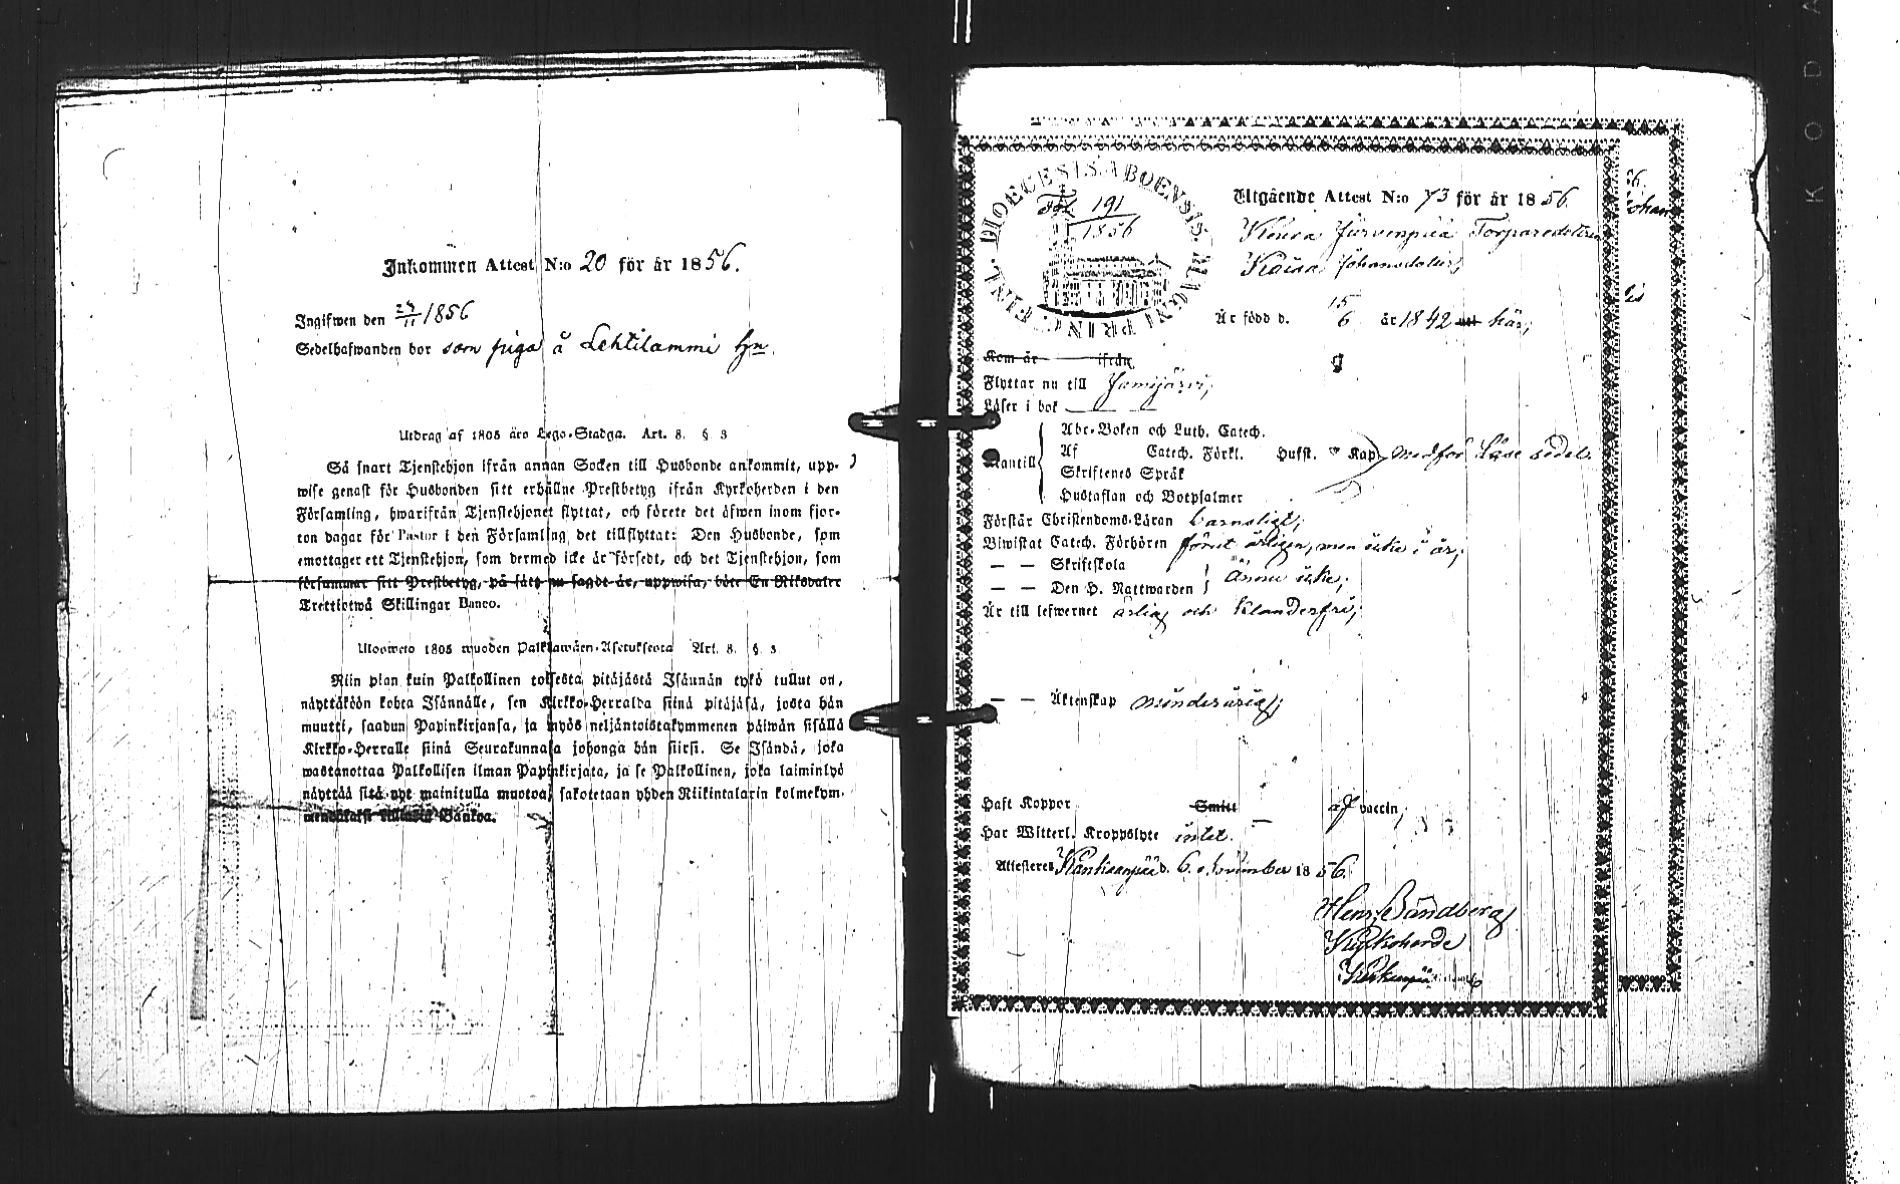 Inkommen Attest N:o 20 för år 1856.
Ingifwen den 24/11 1856
Sedelhafwanden bor som piga å Lehtilammi hn.
Utdrag af 1805 års Lego-Stadga. Art. 8. § 3
Så snart Tjenstehjon ifrån annan Socken till Husbonde ankommit, upp-
wise genast för Husbonden sitt erhållne Prestbetyg ifrån Kyrkoherden i den
Församling, hwarifrån Tjenstehjonet flyttat, och förete det äfwen inom fjor-
ton dagar för Pastor i den Församling det tillflyttat: Den Husbonde, som
emottager ett Tjenstehjon, som dermed icke är försedt, och det Tjenstehjon, som
försummar sitt Prestbetyg, på sätt nu sagdt är, uppwisa, böte En Riksdaler
Trettiotwå Skillingar Banco.
Ulosweto 1805 wuoden Palkkawäen-Asetuksesta Art. 8. § 3
Niin pian kuin Palkollinen toisesta pitäjästä Isännän tykö tullut on,
näyttäköön kohta Isännälle, sen Kirkko-Herralda siinä pitäjäsä, josta hän
muutti, saadun Papinkirjansa, ja myös neljäntoistakymmenen päiwän sisällä
Kirkko-Herralle siinä Seurakunnasa johonga hän siirsi. Se Isändä, joka
wastanottaa Palkollisen ilman Papinkirjata, ja se Palkollinen, joka laiminlyö
näyttää sitä nyt mainitulla muotoa, sakotetaan yhden Riikintalarin kolmekym-
Bankoa.
DIOECESIS ABOENSIS. MAGNI PRINC. FINL.
191
1856
Utgående Attest N:o 73 för år 1856.
Järvenpää Torparedottren
Johansdotter,
Är född d. 15/6 år 1842 här,
Kom år ifrån
Flyttar nu till Jämijärvi,
Läser i bok
Utantill
Abc-Boken och Luth. Catech.
Af Catech. Förkl. Husst. Kap. medför Läse sedel.
Skriftenes Språk
Hustaflan och Botpsalmer
Förstår Christendoms-Läran barnsligt,
Biwistat Catech. Förhören förut årligen, men icke i år,
— — Skriftskola
— — Den H. Nattwarden } ännu icke,
Är till lefwernet ärlig och klanderfri,
— — Äktenskap minderårig,
Haft Koppor Smitt af vaccin,
Har Witterl. Kroppslyte intet.
Attesteres Kankaanpää d. 6 November 1856.
Henr. Sandberg
Kyrkoherde
KODA